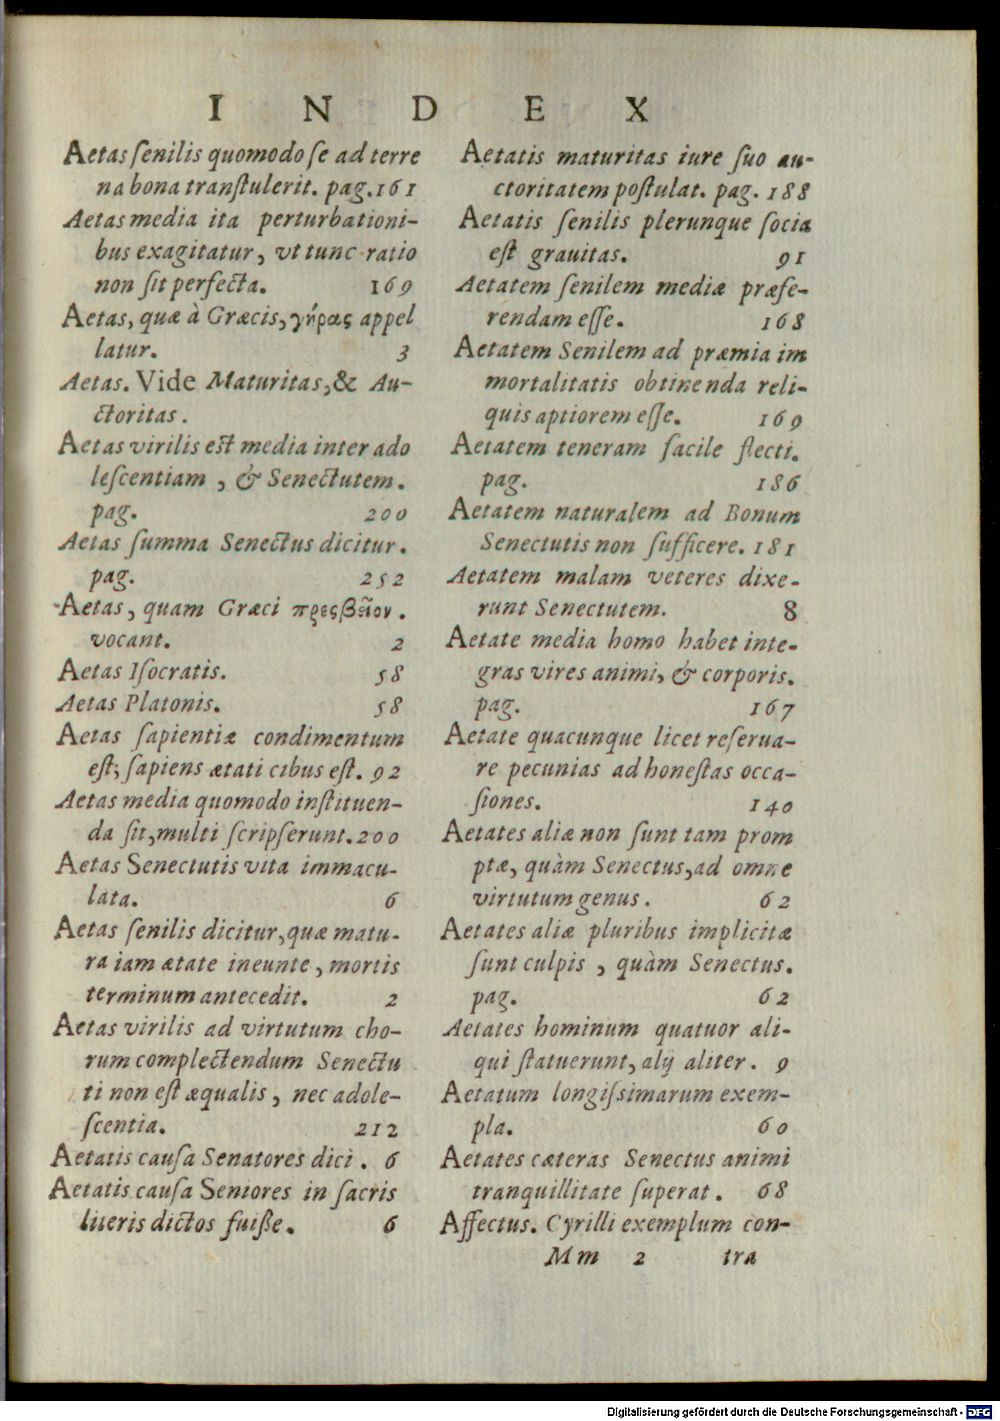 INDEX
Aetas ſenilis quomodo ſe ad terre
na bona tranſtulerit. pag.161
Aetas media ita perturbationi-
bus exagitatur, vt tunc ratio
non ſit perfecta. 169
Aetas, quæ à Græcis, γήρας appel
latur. 3
Aetas. Vide Maturitas, & Au-
ctoritas.
Aetas virilis eſt media inter ado
leſcentiam, & Senectutem.
pag. 200
Aetas ſumma Senectus dicitur.
pag. 252
Aetas, quam Græci πρεσβεῖον.
vocant. 2
Aetas Iſocratis. 58
Aetas Platonis. 58
Aetas ſapientiæ condimentum
eſt; ſapiens ætati cibus eſt. 92
Aetas media quomodo inſtituen-
da ſit, multi ſcripſerunt. 200
Aetas Senectutis vita immacu-
lata. 6
Aetas ſenilis dicitur, quæ matu-
ra iam ætate ineunte, mortis
terminum antecedit. 2
Aetas virilis ad virtutum cho-
rum complectendum Senectu
ti non eſt æqualis, nec adole-
ſcentia. 212
Aetatis cauſa Senatores dici. 6
Aetatis cauſa Seniores in ſacris
literis dictos fuiße. 6
Aetatis maturitas iure ſuo au-
ctoritatem poſtulat. pag. 188
Aetatis ſenilis plerunque ſocia
eſt grauitas. 91
Aetatem ſenilem mediæ præfe-
rendam eſſe. 168
Aetatem Senilem ad præmia im
mortalitatis obtinenda reli-
quis aptiorem eſſe. 169
Aetatem teneram facile flecti.
pag. 186
Aetatem naturalem ad Bonum
Senectutis non ſufficere. 181
Aetatem malam veteres dixe-
runt Senectutem. 8
Aetate media homo habet inte-
gras vires animi, & corporis.
pag. 167
Aetate quacunque licet reſerua-
re pecunias ad honeſtas occa-
ſiones. 140
Aetates aliæ non ſunt tam prom
ptæ, quàm Senectus, ad omne
virtutum genus. 62
Aetates aliæ pluribus implicitæ
ſunt culpis, quàm Senectus.
pag. 62
Aetates hominum quatuor ali-
qui ſtatuerunt, alij aliter. 9
Aetatum longiſsimarum exem-
pla. 60
Aetates cæteras Senectus animi
tranquillitate ſuperat. 68
Affectus. Cyrilli exemplum con-
Mm 2 tra
Digitalisierung gefördert durch die Deutsche Forschungsgemeinschaft - DFG